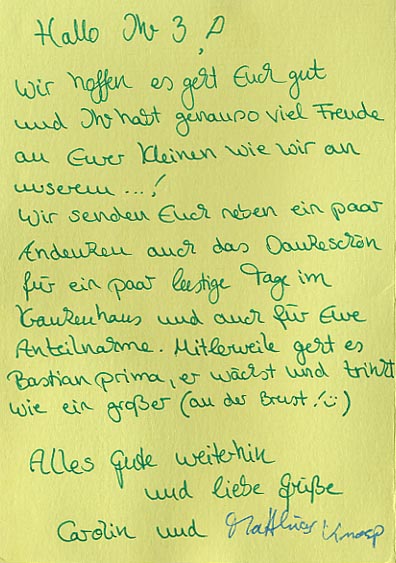 Hallo Ihr 3,
wir hoffen es geht Euch gut
und Ihr habt genauso viel Freude
an Euer Kleinen wie wir an
unserem ...!
Wir senden Euch neben ein paar
Andenken auch das Dankeschön
für ein paar lustige Tage im
Krankenhaus und auch für Eure
Anteilnahme. Mitlerweile geht es
Bastian prima, er wächst und trinkt
wie ein großer (an der Brust!☺)
Alles Gute weiterhin
und liebe Grüße
Carolin und Matthias